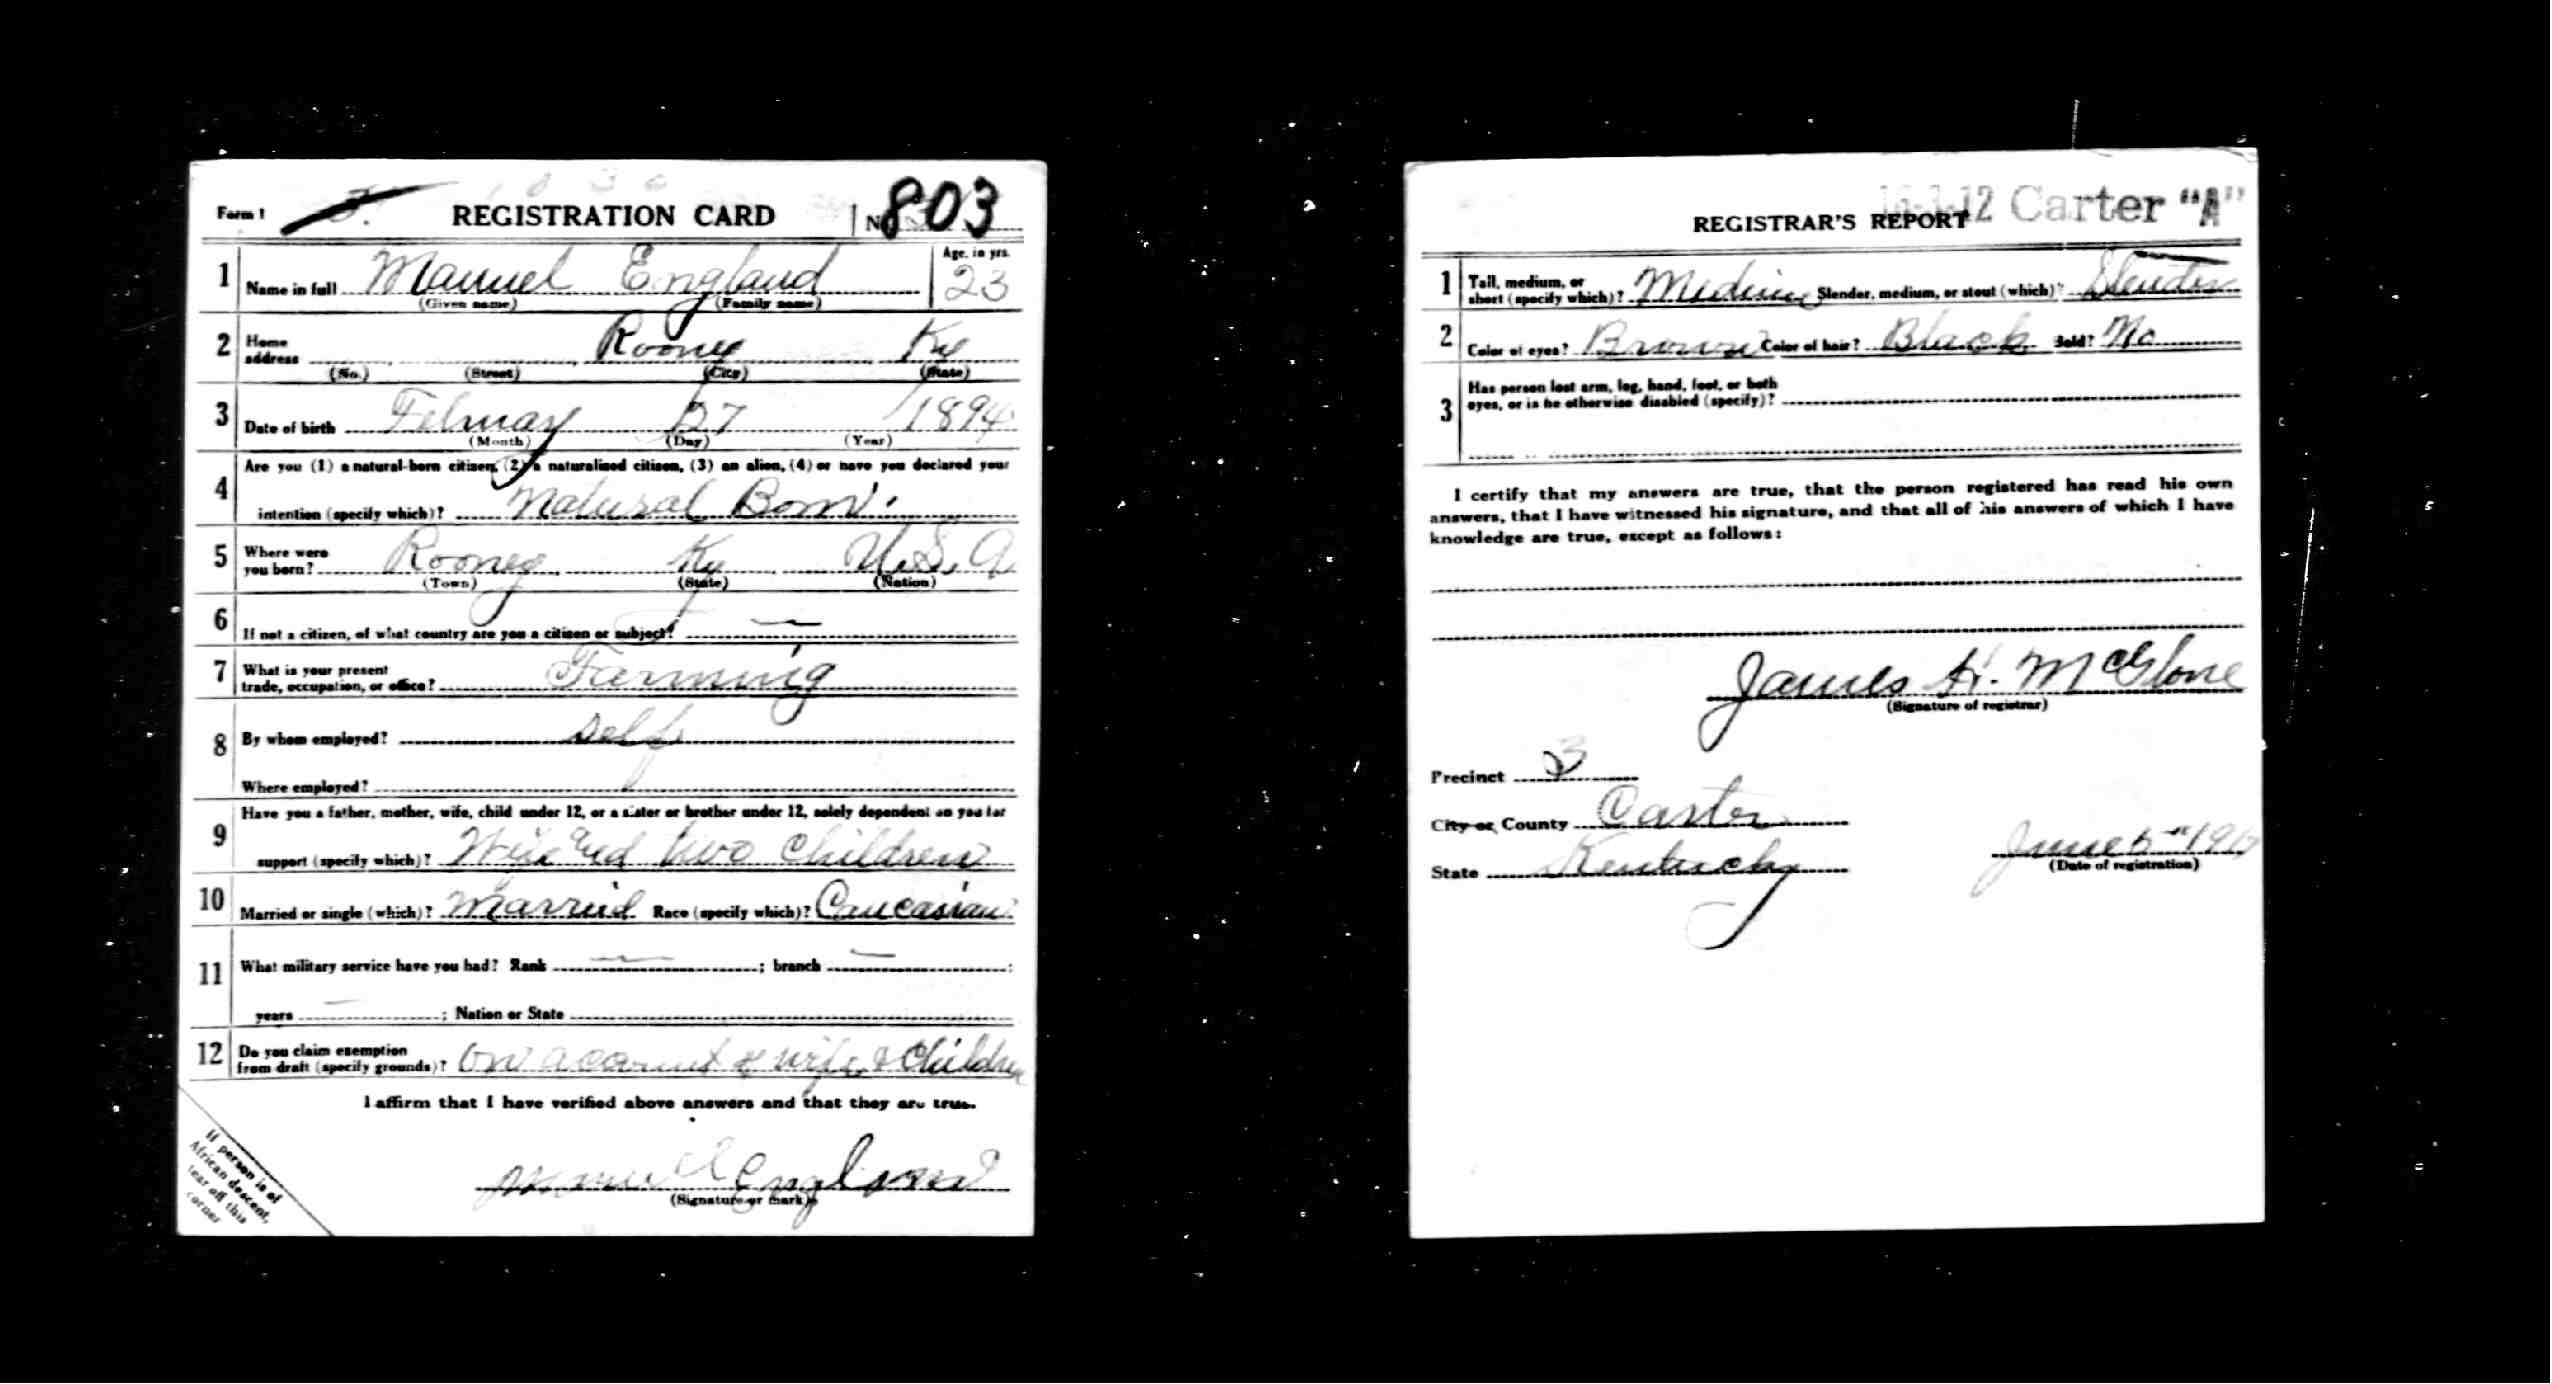 Form 1 REGISTRATION CARD No 803
1 Name in full Manuel England
(Given name) (Family name)
Age, in yrs.
23
2 Home address Rooney Ky
(No.) (Street) (City) (State)
3 Date of birth Februay 27 1894
(Month) (Day) (Year)
4 Are you (1) a natural-born citizen, (2) a naturalized citizen, (3) an alien, (4) or have you declared your
intention (specify which)? Natural Born.
5 Where were you born? Rooney Ky U.S.A
(Town) (State) (Nation)
6 If not a citizen, of what country are you a citizen or subject? —
7 What is your present trade, occupation, or office? Farming
8 By whom employed? self
Where employed?
9 Have you a father, mother, wife, child under 12, or a sister or brother under 12, solely dependent on you for
support (specify which)? Wife and two children
10 Married or single (which)? Married Race (specify which)? Caucasian
11 What military service have you had? Rank — ; branch — ;
years — ; Nation or State
12 Do you claim exemption from draft (specify grounds)? On account of wife & Children
I affirm that I have verified above answers and that they are true.
Manuel England
(Signature or mark)
If person is of
African descent,
tear off this
corner
Carter "A"
REGISTRAR'S REPORT
1 Tall, medium, or short (specify which)? Medium Slender, medium, or stout (which)? Slender
2 Color of eyes? Brown Color of hair? Black Bald? No
3 Has person lost arm, leg, hand, foot, or both eyes, or is he otherwise disabled (specify)?
I certify that my answers are true, that the person registered has read his own
answers, that I have witnessed his signature, and that all of his answers of which I have
knowledge are true, except as follows:
James H. McGlone
(Signature of registrar)
Precinct 3
City or County Carter
State Kentucky
June 5 - 191
(Date of registration)